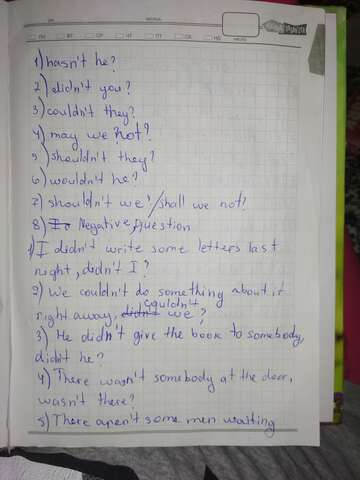 1) hasn't he?
2) didn't you?
3) couldn't they?
4) may we not?
5) shouldn't they?
6) wouldn't he?
7) shouldn't we?/shall we not?
8) Negative question
1) I didn't write some letters last
night, didn't I?
2) We couldn't do something about it
couldn't
right away, didn't we?
3) He didn't give the book to somebody,
didn't he?
4) There wasn't somebody at the door,
wasn't there?
5) There aren't some men waiting